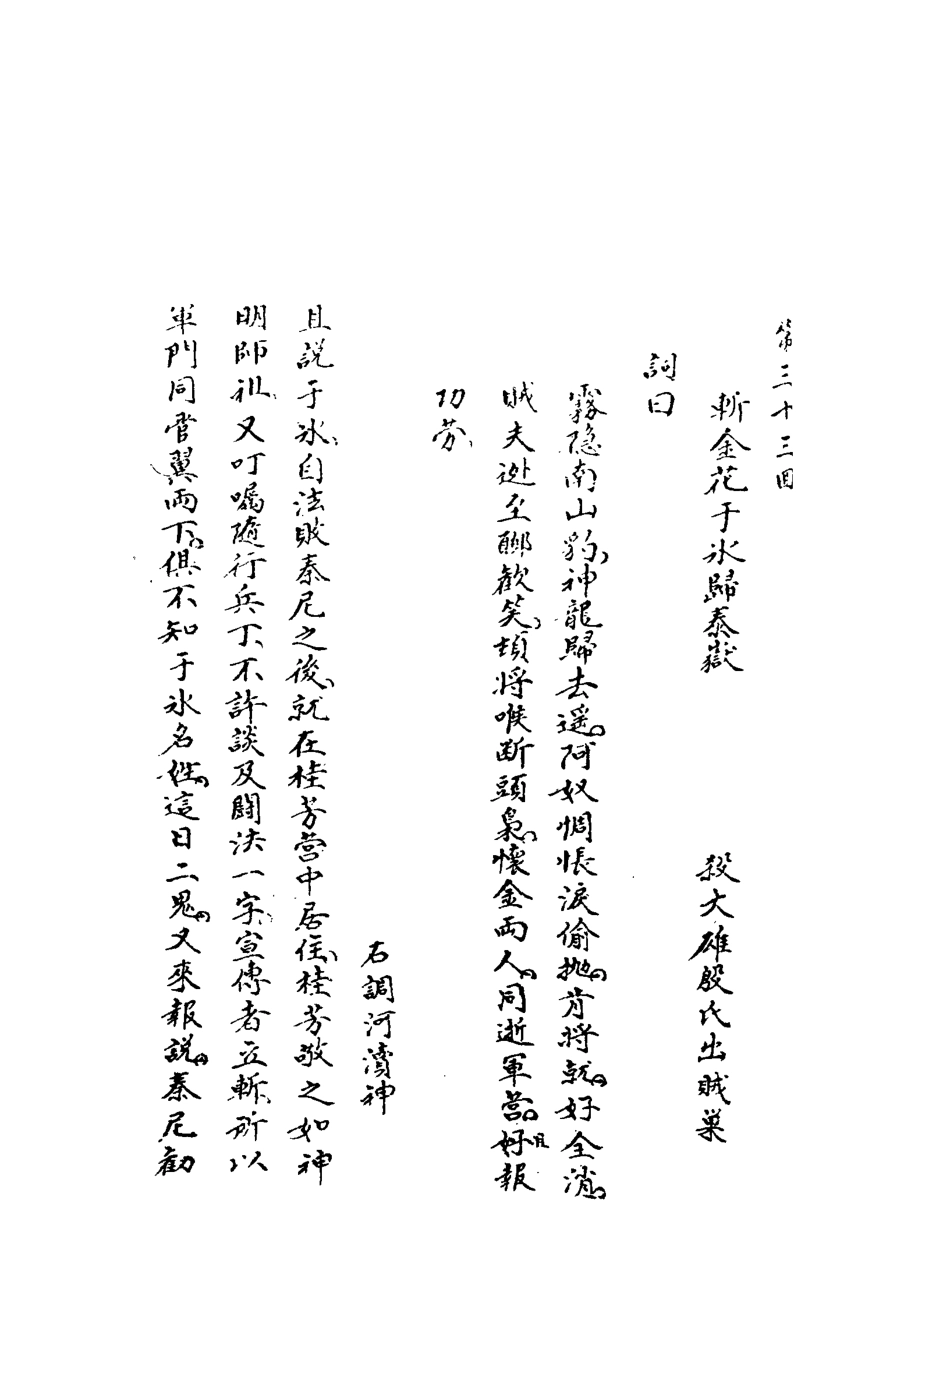 第三十三回
斬金花于氷歸泰嶽　殺大雄殷氏出賊巢
詞曰
霧隐南山豹、神龍歸去遥、阿奴惆悵淚偷抛、肯將就、好全消、
賊夫逊至聊歡笑、頃將喉断頭梟、懷金兩人、同逝軍营、好咀報
功劳、
右調河瀆神
且説于氷、自法敗秦尼之後、就在桂芳营中居住、桂芳敬之如神
明師礼、又叮嘱隨行兵丁、不許談及鬪法一字、宣傳者立斬、所以
軍門同管翼兩下、俱不知于氷名姓、這日二鬼、又來報説、秦尼勸